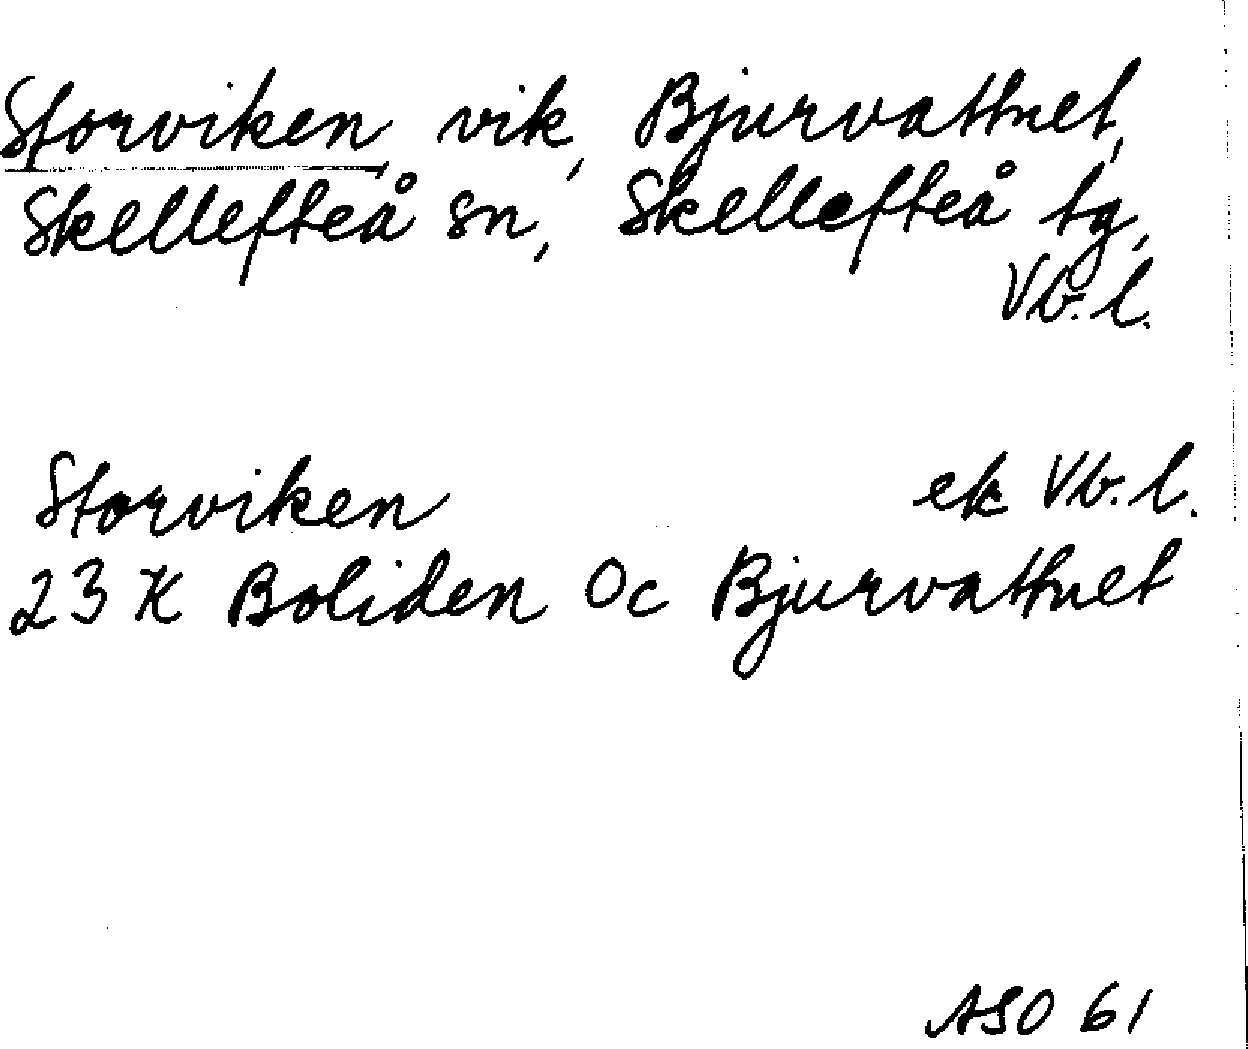 Storviken, vik, Bjurvattnet,
Skellefteå sn, Skellefteå tg,
Vb. l.
Storviken ek Vb. l.
23 K Boliden Oc Bjurvattnet
ASO 61